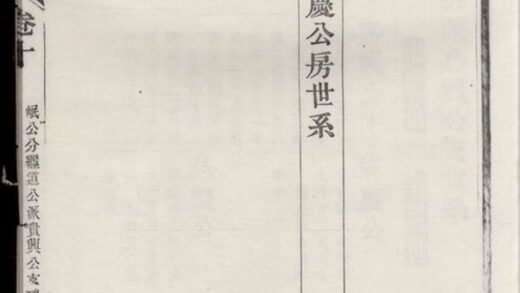 慶公房世系
卷十
岷公分繼道公派貴興公支